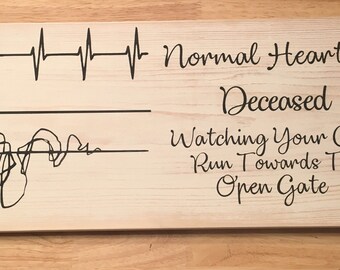 Normal Heart
Deceased
Watching Your
Run Towards
Open Gate